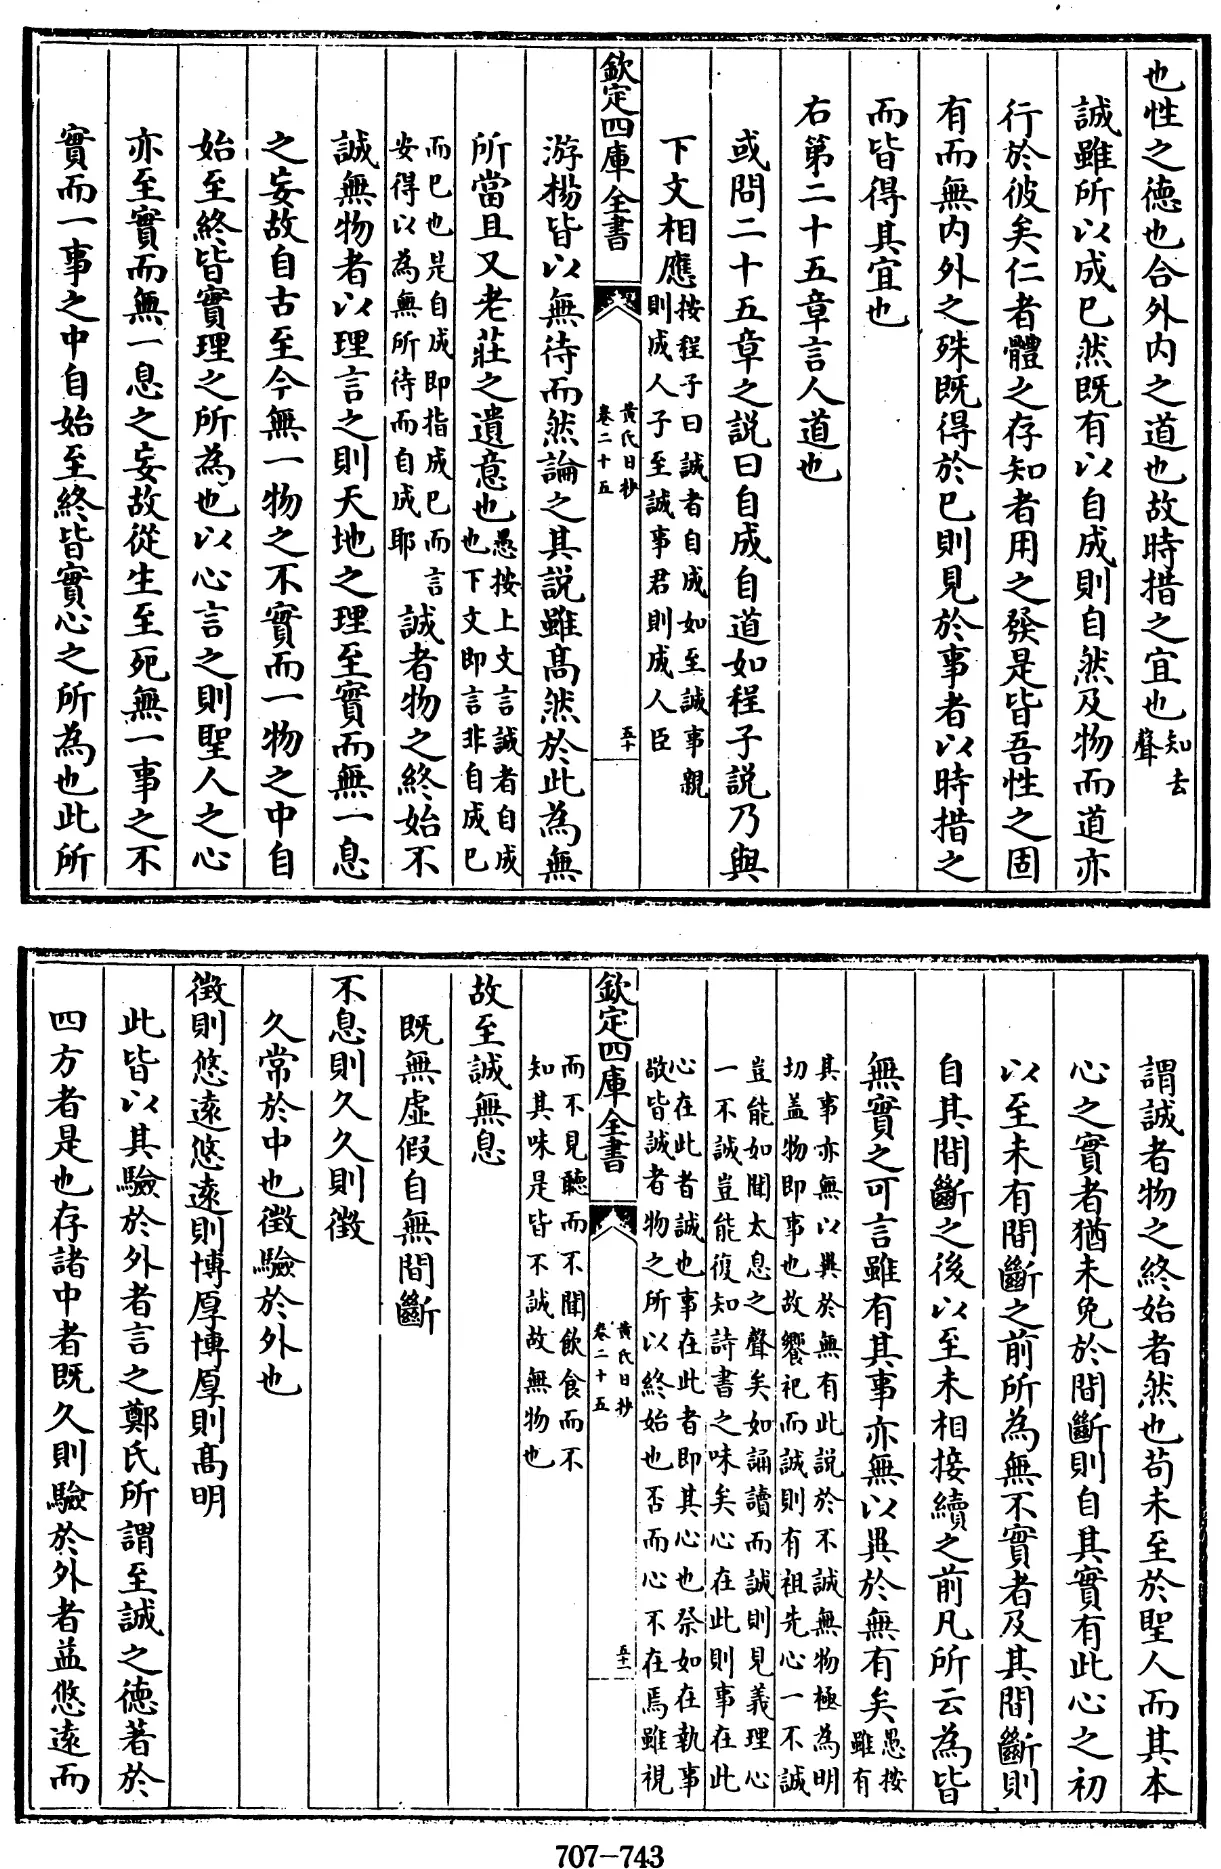 也性之德也合外内之道也故時措之宜也知去聲
誠雖所以成已然既有以自成則自然及物而道亦
行於彼矣仁者體之存知者用之發是皆吾性之固
有而無内外之殊既得於已則見於事者以時措之
而皆得其宜也
右第二十五章言人道也
或問二十五章之説曰自成自道如程子説乃與
下文相應按程子曰誠者自成如至誠事親則成人子至誠事君則成人臣
欽定四庫全書
黄氏日抄
卷二十五
五十
游楊皆以無待而然論之其説雖髙然於此為無
所當且又老莊之遺意也愚按上文言誠者自成也下文即言非自成已
而已也是自成即指成已而言安得以為無所待而自成耶誠者物之終始不
誠無物者以理言之則天地之理至實而無一息
之妄故自古至今無一物之不實而一物之中自
始至終皆實理之所為也以心言之則聖人之心
亦至實而無一息之妄故從生至死無一事之不
實而一事之中自始至終皆實心之所為也此所
謂誠者物之終始者然也苟未至於聖人而其本
心之實者猶未免於間斷則自其實有此心之初
以至未有間斷之前所為無不實者及其間斷則
自其間斷之後以至未相接續之前凡所云為皆
無實之可言雖有其事亦無以異於無有矣愚按雖有
其事亦無以異於無有此説於不誠無物極為明
切蓋物即事也故饗祀而誠則有祖先心一不誠
豈能如聞太息之聲矣如誦讀而誠則見義理心
一不誠豈能復知詩書之味矣心在此則事在此
心在此者誠也事在此者即其心也祭如在執事
敬皆誠者物之所以終始也否而心不在焉雖視
欽定四庫全書
黄氏日抄
卷二十五
五十一
而不見聽而不聞飲食而不
知其味是皆不誠故無物也
故至誠無息
既無虚假自無間斷
不息則久久則徵
久常於中也徵驗於外也
徵則悠遠悠遠則博厚博厚則髙明
此皆以其驗於外者言之鄭氏所謂至誠之德著於
四方者是也存諸中者既久則驗於外者益悠遠而
707-743